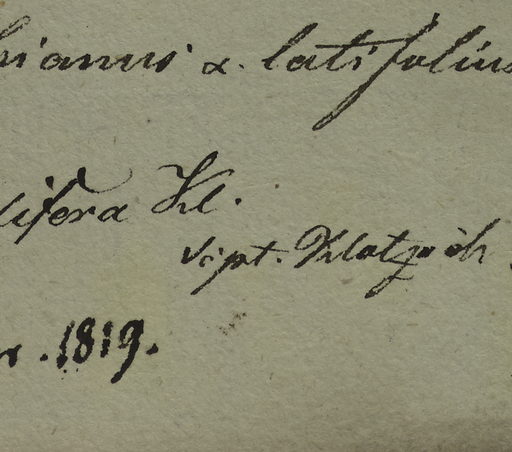 hianus α. latifolius
lifera Kl.
scipt. Klotzsch
r. 1819.